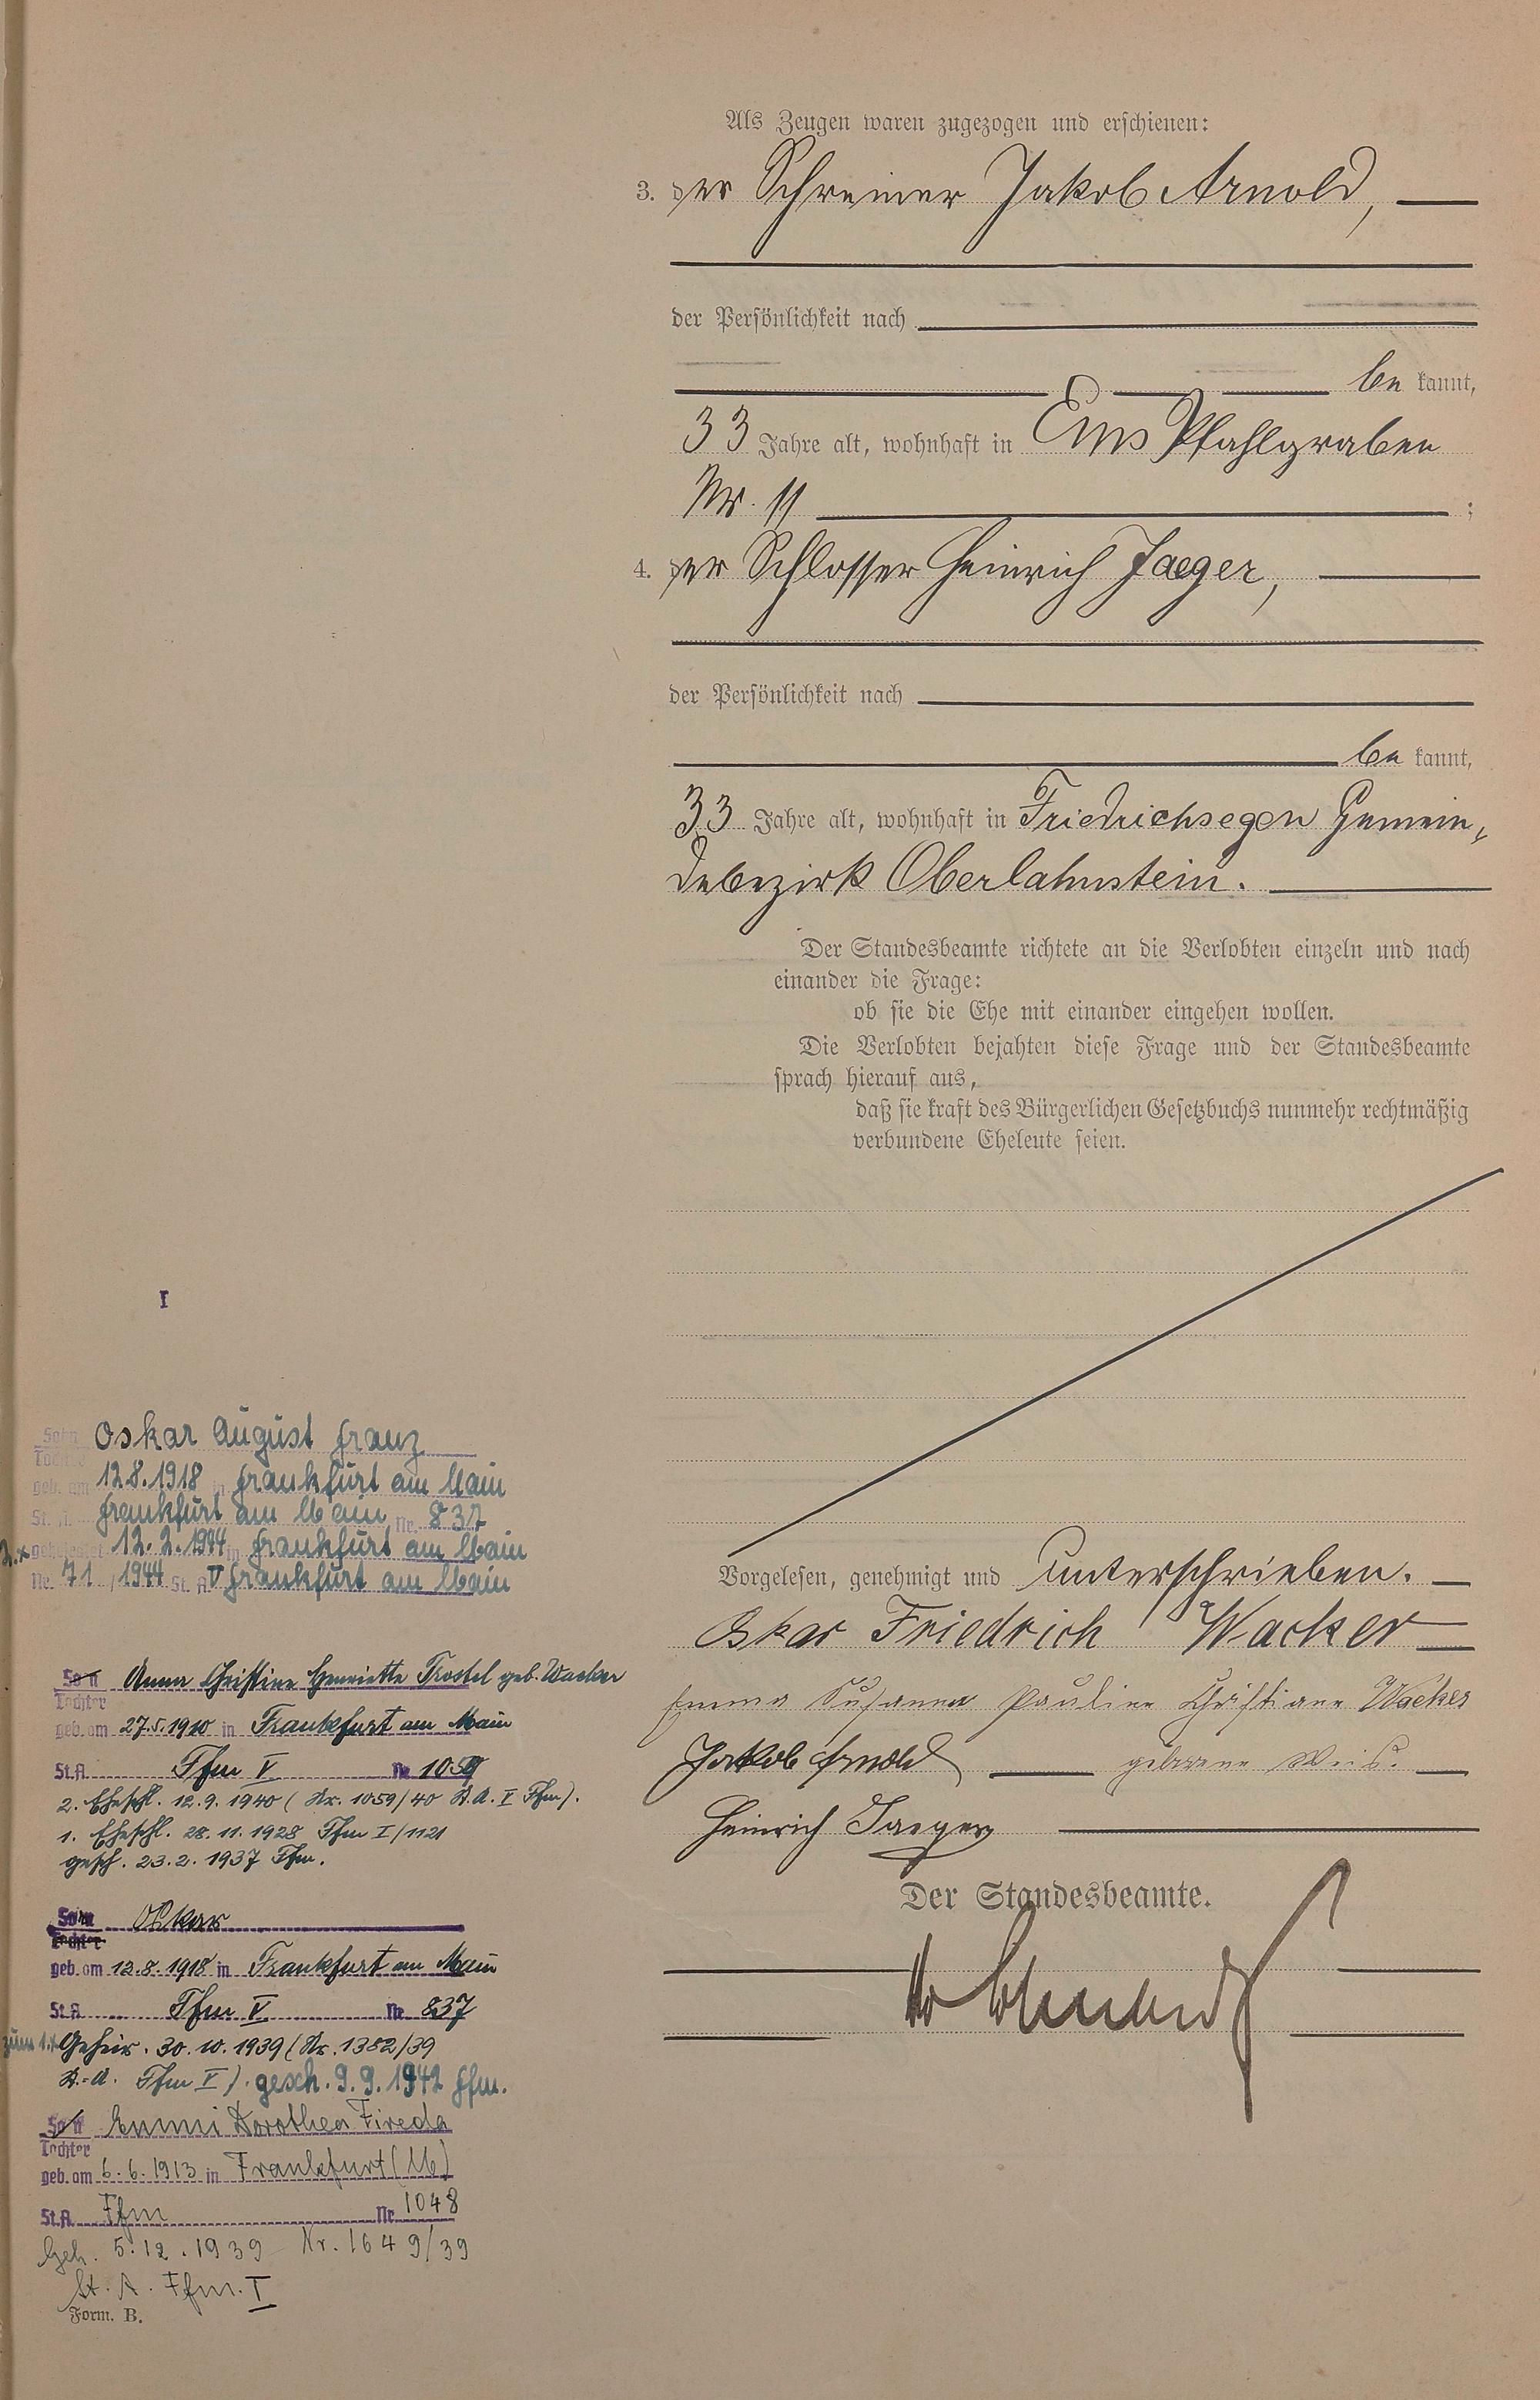 Als Zeugen waren zugezogen und erschienen:
3. der Schreiner Jakob Arnold,
der Persönlichkeit nach
be kannt,
33 Jahre alt, wohnhaft in Ems Pfahlgraben
Nr. 11 ;
4. der Schlosser Heinrich Jaeger,
der Persönlichkeit nach
be kannt,
33 Jahre alt, wohnhaft in Friedrichsegen Gemein-
debezirk Oberlahnstein.
Der Standesbeamte richtete an die Verlobten einzeln und nach
einander die Frage:
ob sie die Ehe mit einander eingehen wollen.
Die Verlobten bejahten diese Frage und der Standesbeamte
sprach hierauf aus,
daß sie kraft des Bürgerlichen Gesetzbuchs nunmehr rechtmäßig
verbundene Eheleute seien.
Vorgelesen, genehmigt und unterschrieben.
Oskar Friedrich Wacker
Emma Susanna Pauline Christiane Wacker
Jakob Arnold geborene Weiß.
Heinrich Jaeger
Der Standesbeamte.
I
Sohn Oskar August Franz
Tochter
geb. am 12.8.1918 in Frankfurt am Main
St. A. Frankfurt am Main Nr. 837
2.x geheiratet 12.2.1944 in Frankfurt am Main
Nr. 71 / 1944 St. A. V Frankfurt am Main
Sohn Anna Christine Henriette Trostel geb. Wacker
Tochter
geb. am 27.5.1910 in Frankfurt am Main
St.A. Ffm V Nr 1059
2. Eheschl. 12.9.1940 (Nr. 1059/40 St.A. V Ffm).
1. Eheschl. 28.11.1928 Ffm I/1121
gesch. 23.2.1937 Ffm.
Sohn Oskar
Tochter
geb. am 12.8.1918 in Frankfurt am Main
St.A. Ffm V Nr 837
zum 1.x Geheir. 30.10.1939 (Nr. 1382/39
St.-A. Ffm V). gesch. 9.9.1942 Ffm.
Sohn Emmi Dorothea Frieda
Tochter
geb. am 6.6.1913 in Frankfurt (M)
St.A. Ffm Nr 1048
Geh. 5.12.1939 Nr. 1649/39
St. A. Ffm. I
Form. B.